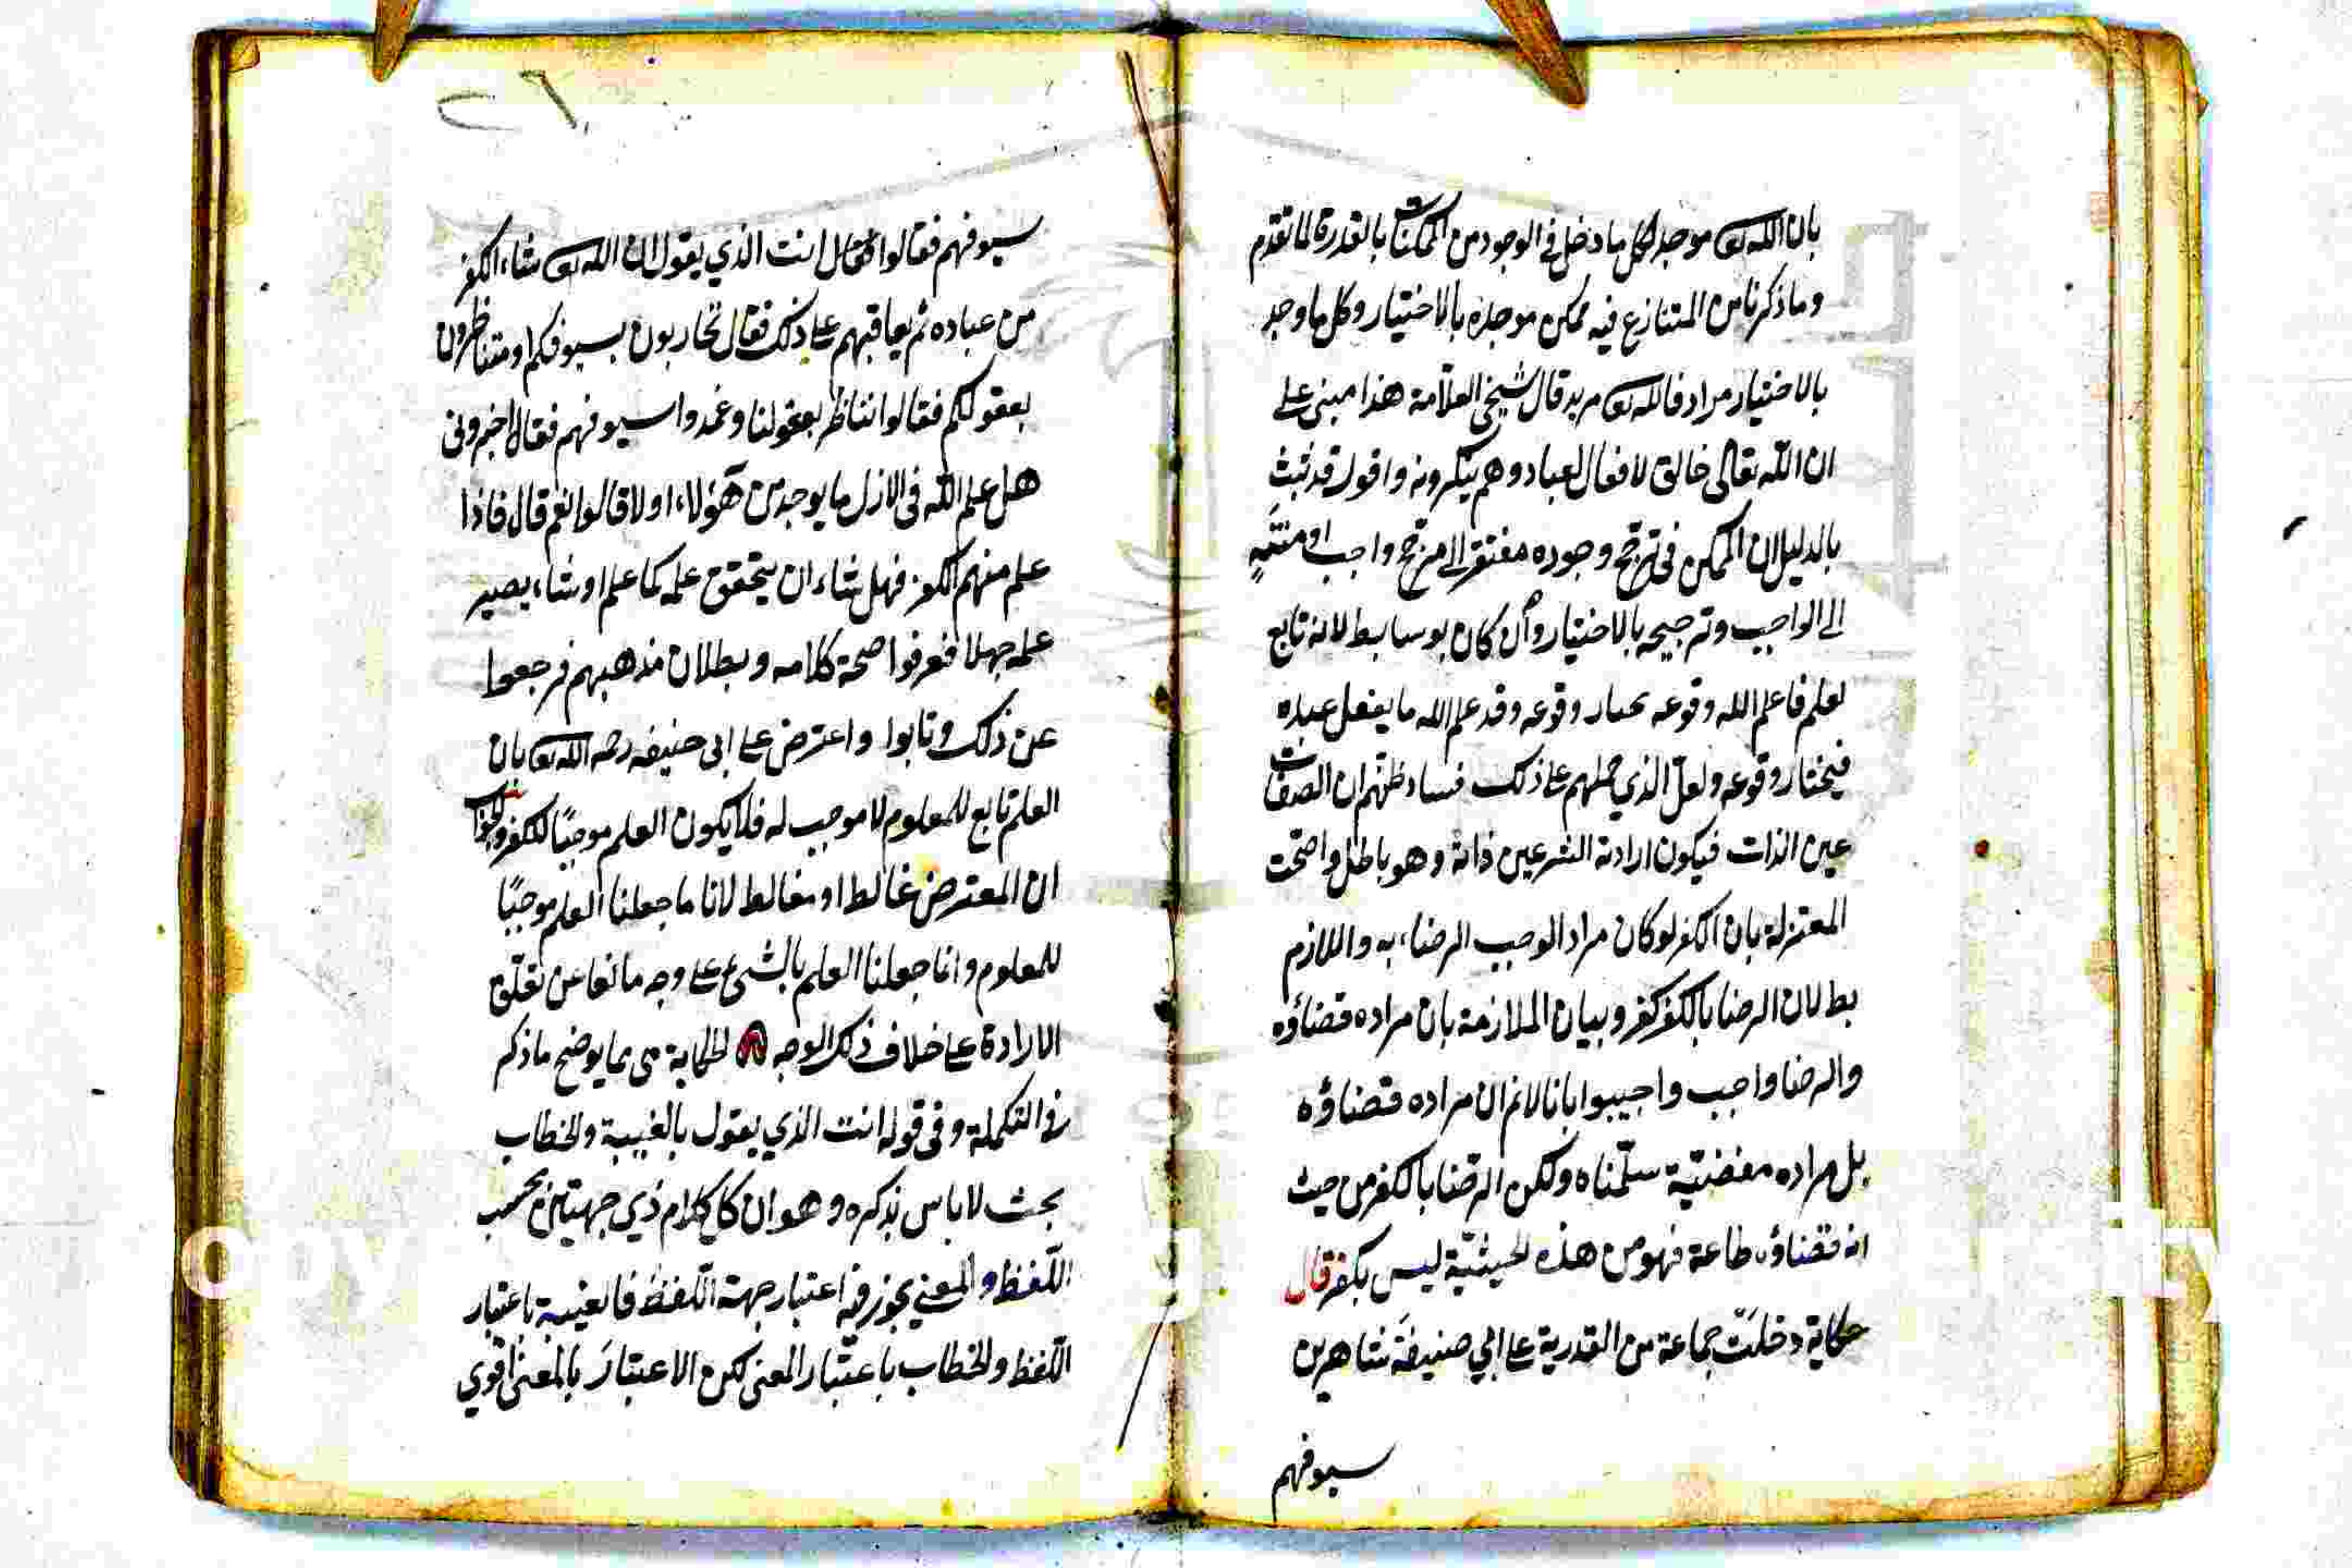 بان الله تعه موجد لكل ما دخل في الوجود من الممكنات بالقدرة لما تقدم
وما ذكرنا من المتنازع فيه ممكن موجده بالاختيار وكل ما وجد
بالاختيار مراد فالله تعه مريد قال شيخي العلّامة هذا مبنى على
ان الله تعالى خالق لافعال العباد وهم ينكرونه واقول قد ثبت
بالدليل ان الممكن في ترجّح وجوده مفتقر الى مرجّح واجب او منتهٍ
الى الواجب وترجيحه بالاختيار وان كان بوسايط لانه تابع
لعلم فما علم الله وقوعه يختار وقوعه وقد علم الله ما يفعل عباده
فيختار وقوعه ولعلّ الذي حملهم على ذلك فساد ظنّهم ان الصفات
عين الذات فيكون ارادته الشر عين ذاته وهو باطل واحتجّت
المعتزلة بان الكفر لو كان مرادا لوجب الرضاء به واللازم
بط لان الرضا بالكفر كفر وبيان الملازمة بان مراده قضاؤه
والرضا واجب واجيبوا بانا لانم ان مراده قضاؤه
بل مراده مقضيّه سلّمناه ولكن الرضا بالكفر من حيث
انه قضاؤه طاعة فهو من هذه الحيثيّة ليس بكفر قال
حكاية دخلت جماعة من القدرية على ابي حنيفة شاهرين
سيوفهم
٢٦
سيوفهم فقالوا انت الذي يقول ان الله تعه شاء الكفر
من عباده ثم يعاقبهم على ذلك فقال تحاربون بسيوفكم او متناظرون
بعقولكم فقالوا نناظر بعقولنا وغمدوا سيوفهم فقال اخبروني
هل علم الله في الازل ما يوجد من هؤلاء او لا قالوا نعم قال فاذا
علم منهم الكفر فهل شاء ان يتحقق علمه كما علم او شاء يصير
علمه جهلا فعرفوا صحة كلامه وبطلان مذهبهم فرجعوا
عن ذلك وتابوا واعترض على ابي حنيفه رحمه الله تعه بان
العلم تابع للمعلوم لا موجب له فلا يكون العلم موجبًا للكفر والجواب
ان المعترض غالط او مغالط لانا ما جعلنا العلم موجبًا
للمعلوم وانما جعلنا العلم بالشئ على وجه مانعا عن تعلّق
الارادة على خلاف ذلك الوجه الحكاية مما يوضح ما ذكر
في التكملة وفي قوله انت الذي يقول بالغيبة والخطاب
بحث لا باس بذكره وهو ان كل كلام ذي جهتين بحسب
اللّفظ والمعنى يجوز فيه اعتبار جهة اللّفظ فالغيبة باعتبار
اللّفظ والخطاب باعتبار المعنى لكن الاعتبار بالمعنى اقوي